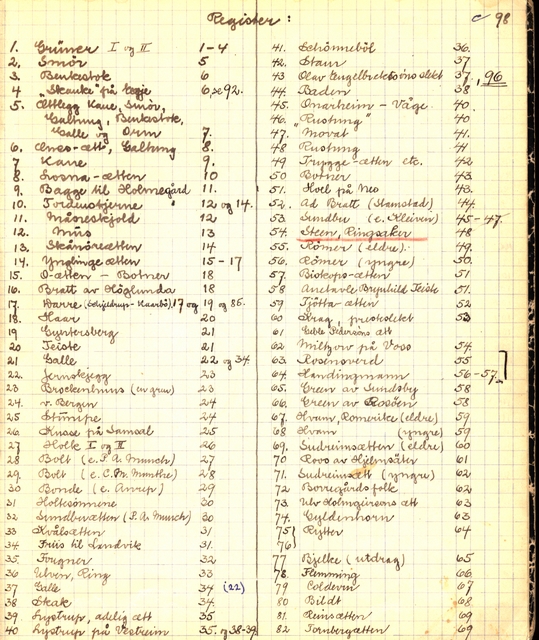 Register:
c 98
1. Grüner I og II 1-4
2. Smör 5
3. Benkestok 6
4 "Skanke" på Egge 6, se 92.
5. Ættlegg Kane, Smör,
Galtung, Benkestok,
Galle og Orm 7.
6. Ænes-ætt, Galtung 8.
7 Kane 9.
8. Losna-ætten 10
9. Bagge til Holmegård 11.
10. Tordenstjerne " 12 og 14.
11. Måneskjold 12
12. Mus 13
13. Skånörætten 14
14. Ynglinge ætten 15-17
15. O-ætten - Botner 18
16. Bratt av Höglunda 18
17. Darre (Schjeldrup-Kaarbö), 17 og 19 og 86.
18. Haar 20
19. Gyntersberg 21
20 Teiste 21
21 Galle 22 og 34.
22. Jernskjegg 23
23 Brockenhuus (en gren) 23
24. v. Bergen 24
25 Stumpe 24
26. Knase på Samsal 25
27 Holk I og II 26
28 Bolt (e. P. A. Munch) 27
29. Bolt (e. C. M. Munthe) 28
30 Bonde (e. Anrep) 29
31 Holtesönnene 30
32 Sundbuætten (P. A. Munch) 30
33 Kvålsætten 31
34. Friis til Landvik 31.
35. Furguner 32
36 Utven, Ring 33
37 Galle 34 (22)
38 Skak 34.
39 Lystrup, adelig ætt 35
40 Lystrup på Vestreim 35. og 38-39.
41. Schönneböl 36.
42. Staur 37
43 Olav Engelbrektsöns slekt 37, 96
44. Baden 38
45. Onarheim - Våge. 40
46. "Rustung" 40.
47. Movat 41.
48 Rustung 41
49 Trygge-ætten etc. 42
50 Botner 43
51. Hoel på Nes 43.
52. Ad Bratt (Stamstad) 44.
53. Sundbu (e. Kleiven) 45-47.
54. Steen, Ringsaker 48
55. Römer (eldre). 49.
56. Römer (yngre) 50.
57. Biskops-ætten 51
58 Anetavle Brynhild Teiste 51.
59 Tjötta-ætten 52
60 Krag, presteslekt 53
61 Geble Pedersöns ætt
62 Miltzow på Voss 54.
63. Rosensverd 55
64. Handingmann 56-57.
65. Green av Sundsby 58
66. Green av Rossön 58
67. Hvam, Romerike (eldre) 59
68 Hvam (yngre) 59
69. Sudreimsætten (eldre) 60
70 Roos av Hjelmsäter 61
71. Sudreimsætt (yngre) 61
72 Borregårds folk 62
73. Ulv Holmgeirsöns ætt 63
74. Gyldenhorn 63
75 Rytter 64
76
77 Bjelke (utdrag) 65
78. Flemming 66
79 Coldevin 67
80 Bildt 68
81. Reinsætten 69
82 Tornbergætten 69